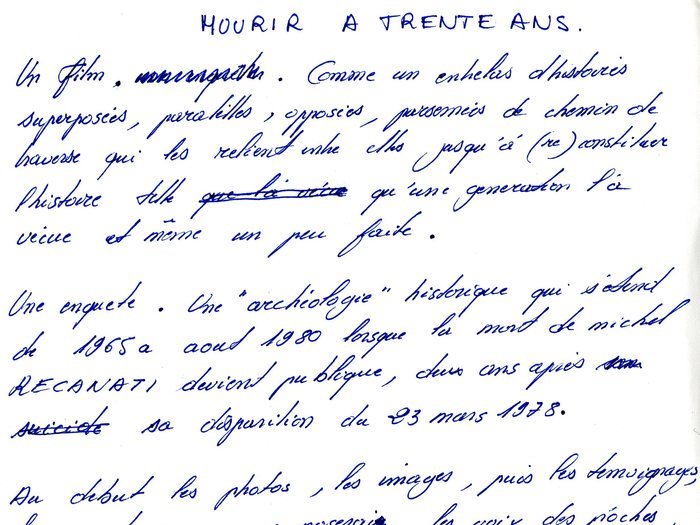 MOURIR A TRENTE ANS.
Un film. . Comme un enhelas d'histoires
superposées, paralèlles, opposées, parsemées de chemin de
traverse qui les relient entre elles jusqu'à (re)constituer
l'histoire telle que l'a vécue qu'une generation l'a
vécue et même un peu faite.
Une enquete. Une "archéologie" historique qui s'étend
de 1965 a aout 1980 lorsque la mort de michel
RECANATI devient publique, deux ans après son
suicide sa disparition du 23 mars 1978.
Au debut les photos, les images, puis les temoignages,
les voix des proches